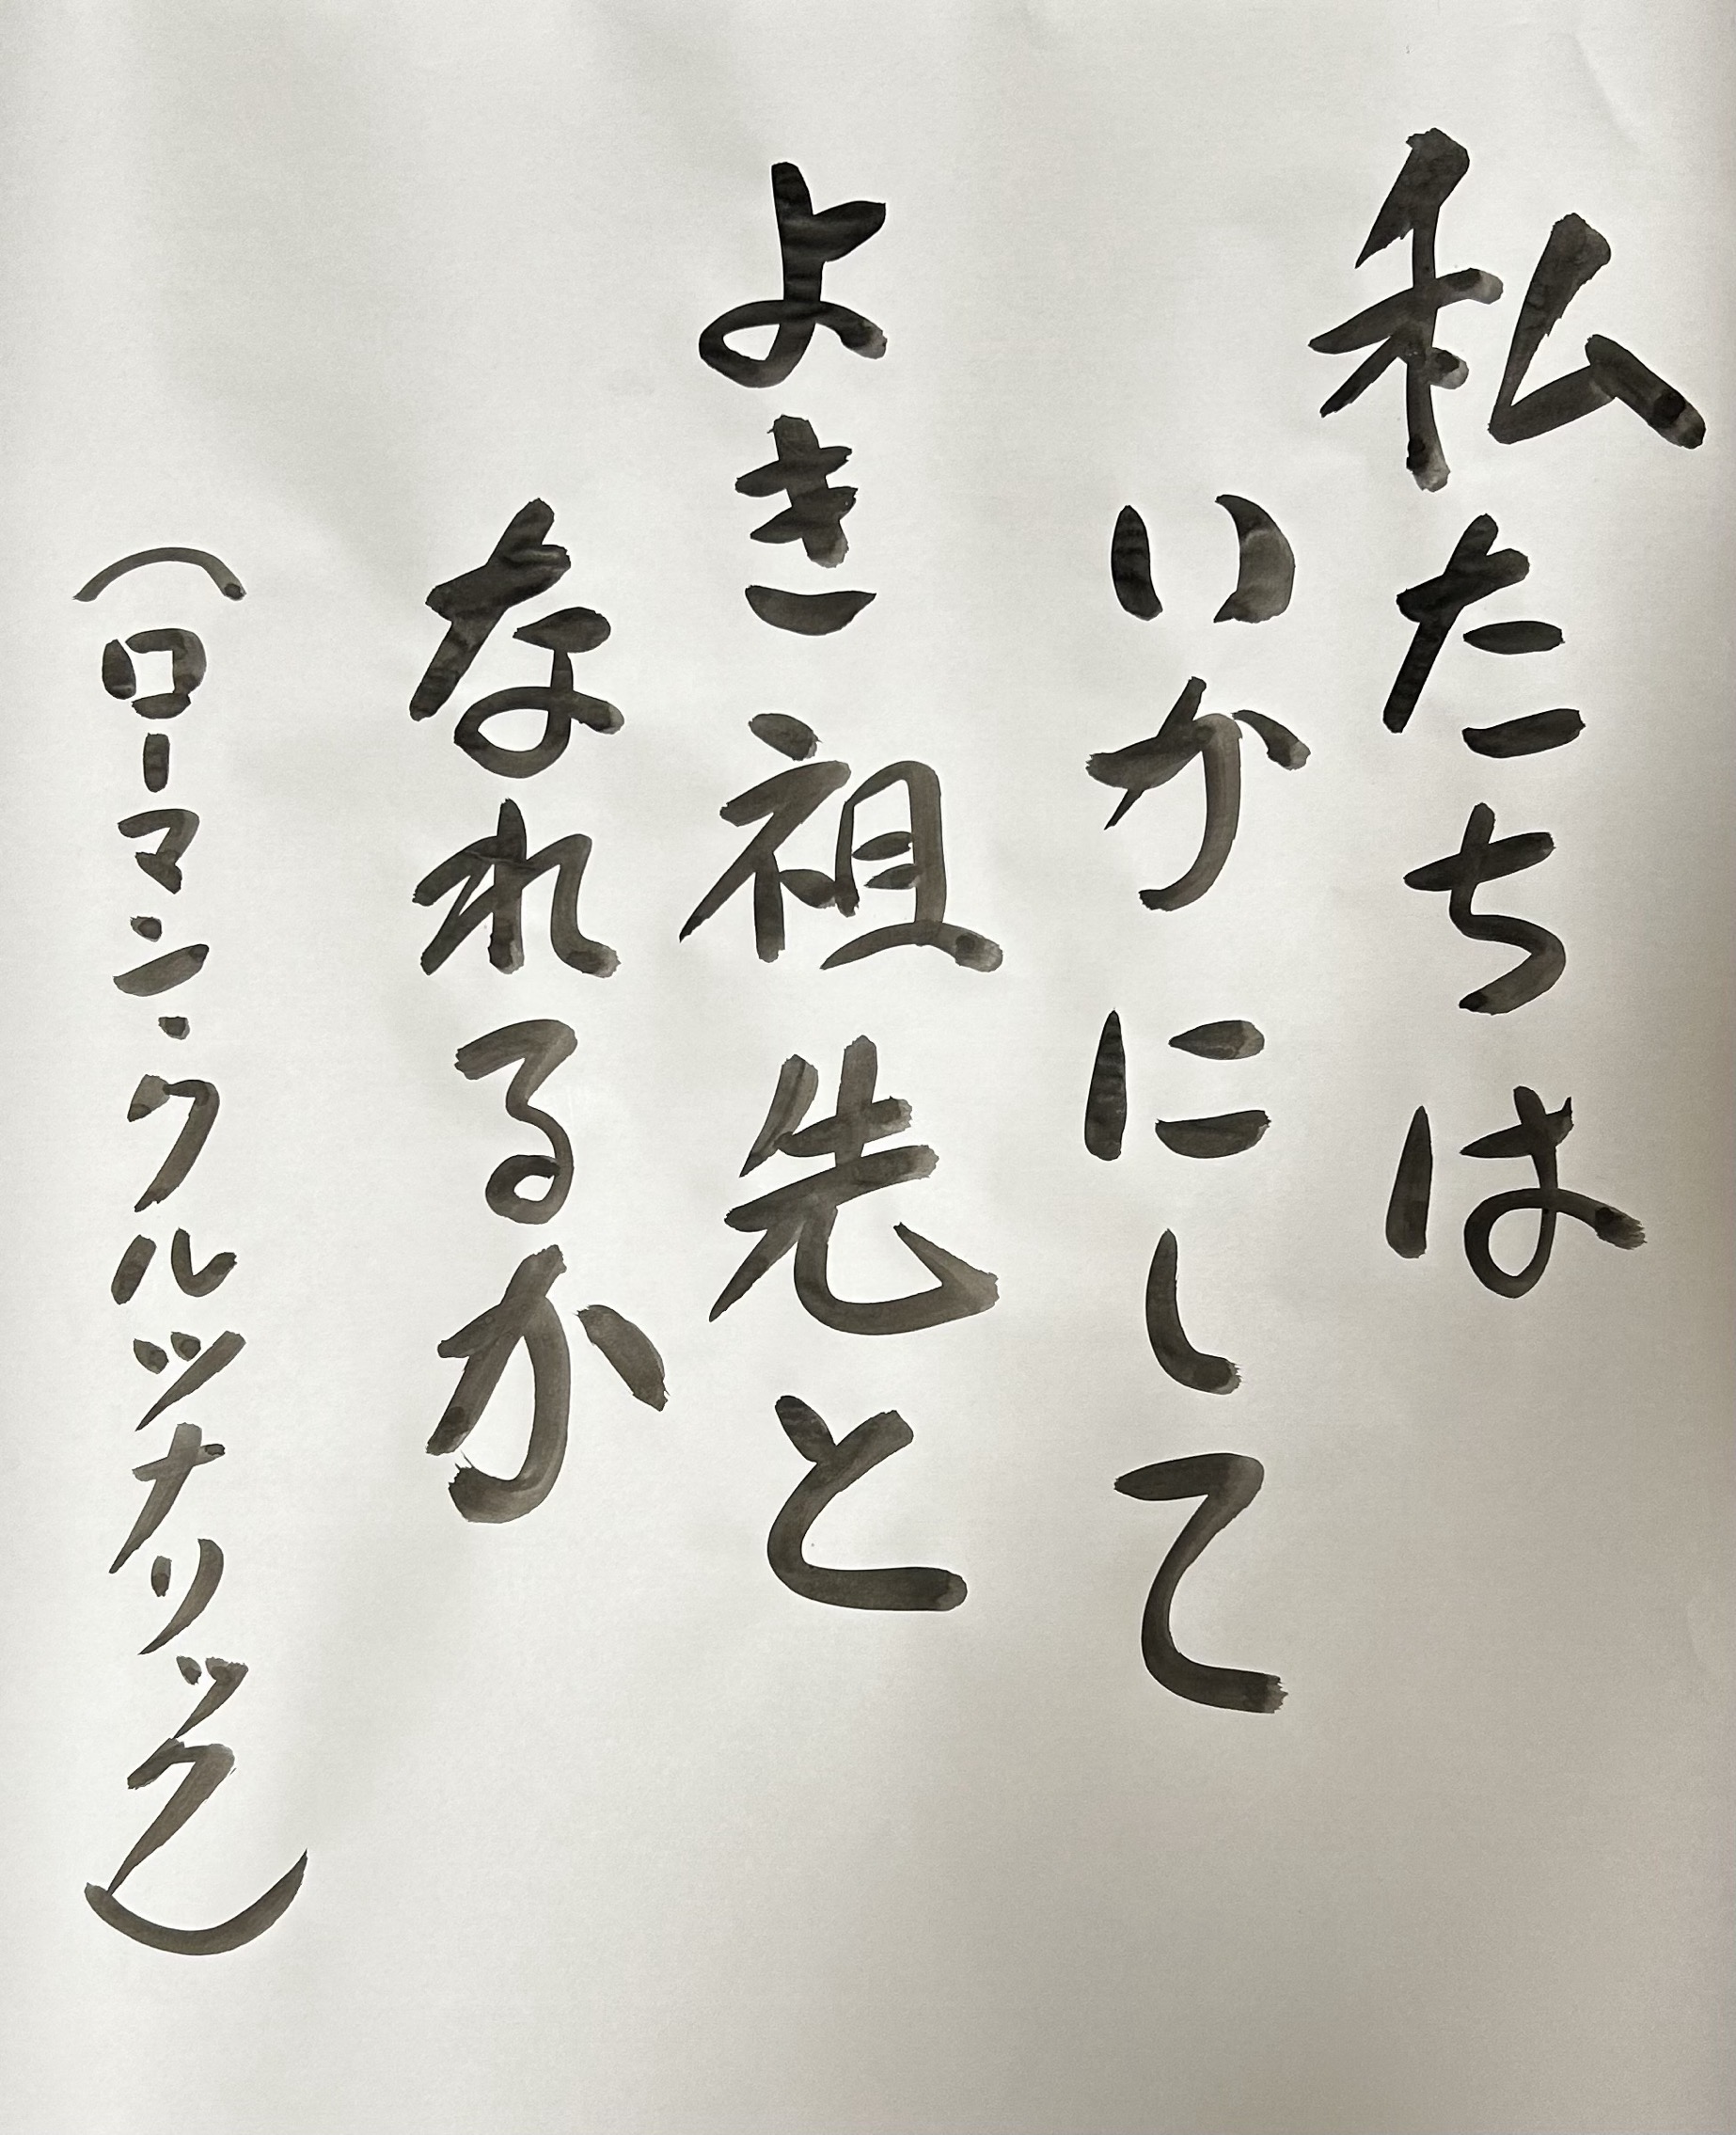 私たちは
いかにして
よき祖先と
なれるか
（ローマン・クルツナリック）